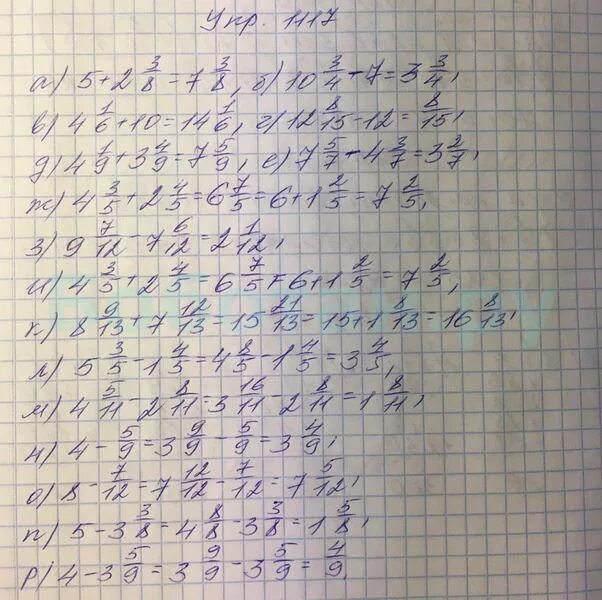 Упр. 1117
а) 5 + 2 3/8 = 7 3/8, б) 10 3/4 - 7 = 3 3/4,
в) 4 1/6 + 10 = 14 1/6, г) 12 8/15 - 12 = 8/15,
д) 4 1/9 + 3 4/9 = 7 5/9, е) 7 5/7 - 4 3/7 = 3 2/7,
ж) 4 3/5 + 2 4/5 = 6 7/5 = 6 + 1 2/5 = 7 2/5,
з) 9 7/12 - 7 6/12 = 2 1/12,
и) 4 3/5 + 2 4/5 = 6 7/5 = 6 + 1 2/5 = 7 2/5,
к) 8 9/13 + 7 12/13 = 15 21/13 = 15 + 1 8/13 = 16 8/13,
л) 5 3/5 - 1 4/5 = 4 8/5 - 1 4/5 = 3 4/5,
м) 4 5/11 - 2 8/11 = 3 16/11 - 2 8/11 = 1 8/11,
н) 4 - 5/9 = 3 9/9 - 5/9 = 3 4/9,
о) 8 - 7/12 = 7 12/12 - 7/12 = 7 5/12,
п) 5 - 3 3/8 = 4 8/8 - 3 3/8 = 1 5/8,
р) 4 - 3 5/9 = 3 9/9 - 3 5/9 = 4/9.